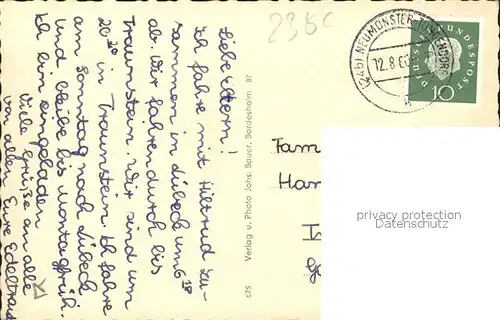 2356
Liebe Eltern!
Ich fahre mit Hiltrud zu-
sammen in Lübeck um 6 18
ab. Wir fahren durch bis
Traunstein. Wir sind um
20 30 in Traunstein. Ich fahre
am Sonntag nach Lübeck
und bleibe bis Montagfrüh.
Ich bin eingeladen
Viele Grüße an alle
von allen Eure Edeltraud
575 Verlag u. Photo Johs. Bauer, Bordesholm 87
(24b) NEUMÜNSTER
12.8.60
DEUTSCHE BUNDESPOST
10
Fam
Han
privacy protection
Datenschutz